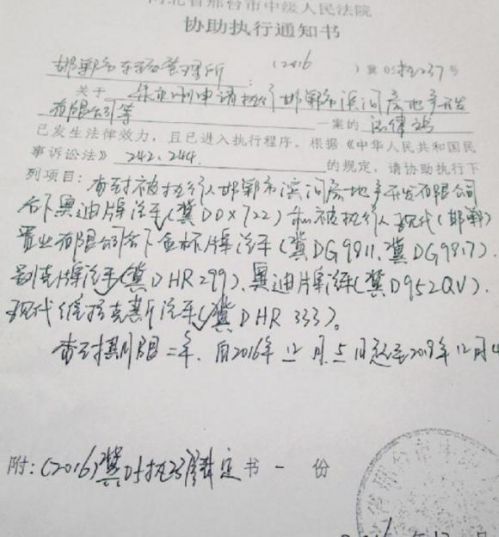 河北省邢台市中级人民法院
协助执行通知书
邯郸市车辆管理所 (2016)冀05执237号
关于 申请执行邯郸市滨河房地产开发
有限公司等 一案的 法律
已发生法律效力，且已进入执行程序。根据《中华人民共和国民
事诉讼法》 242、244 的规定，请协助执行下
列项目：查封被执行人邯郸市滨河房地产开发有限公司
名下奥迪牌汽车(冀DDX722)和被执行人现代(邯郸)
置业有限公司名下金杯牌汽车(冀DG9811,冀DG9817)、
别克牌汽车(冀DHR299)、奥迪牌汽车(冀D952QV)、
现代维拉克斯汽车(冀DHR333)。
查封期限 年，自2016年12月5日起至201 年12月4
附：(2016)冀05执 裁定书一份